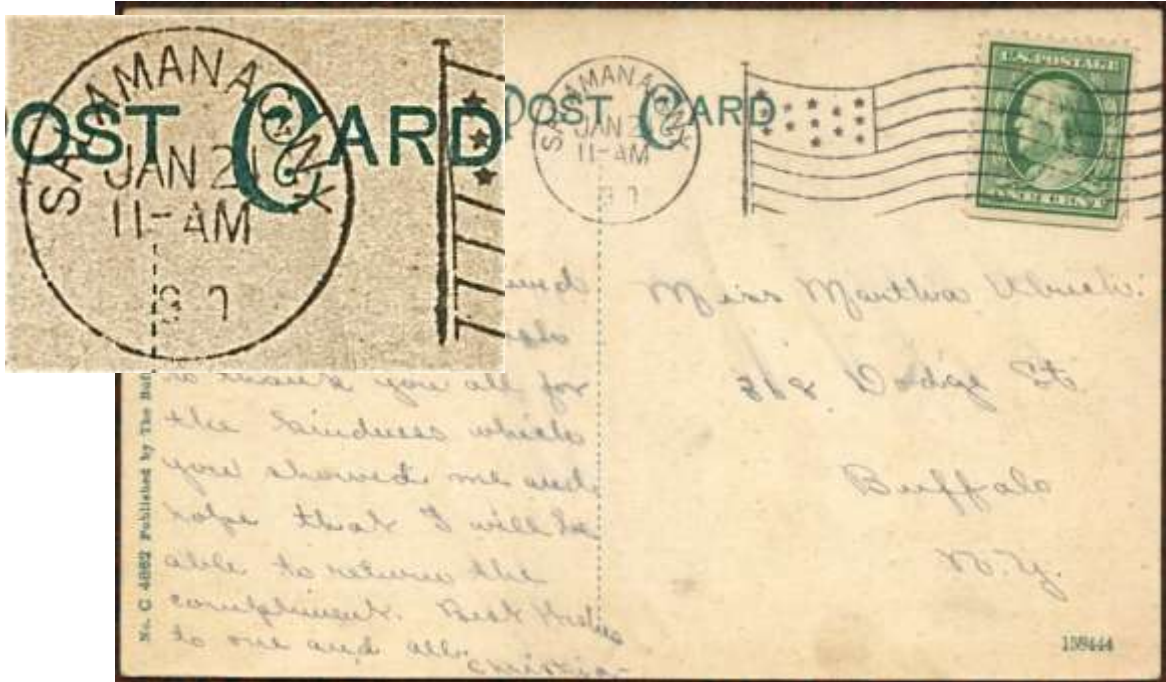 POST CARD
SALAMANCA N.Y.
JAN 21
11-AM
POST CARD
SALAMANCA N.Y.
JAN 2
11-AM
U.S. POSTAGE
to thank you all for
the kindness which
you showed me and
hope that I will be
able to return the
compliment. Best wishes
to one and all.
Christina
Miss Martha
318 Dodge St
Buffalo
N.Y.
No. C 4862 Published by The Buf
158444